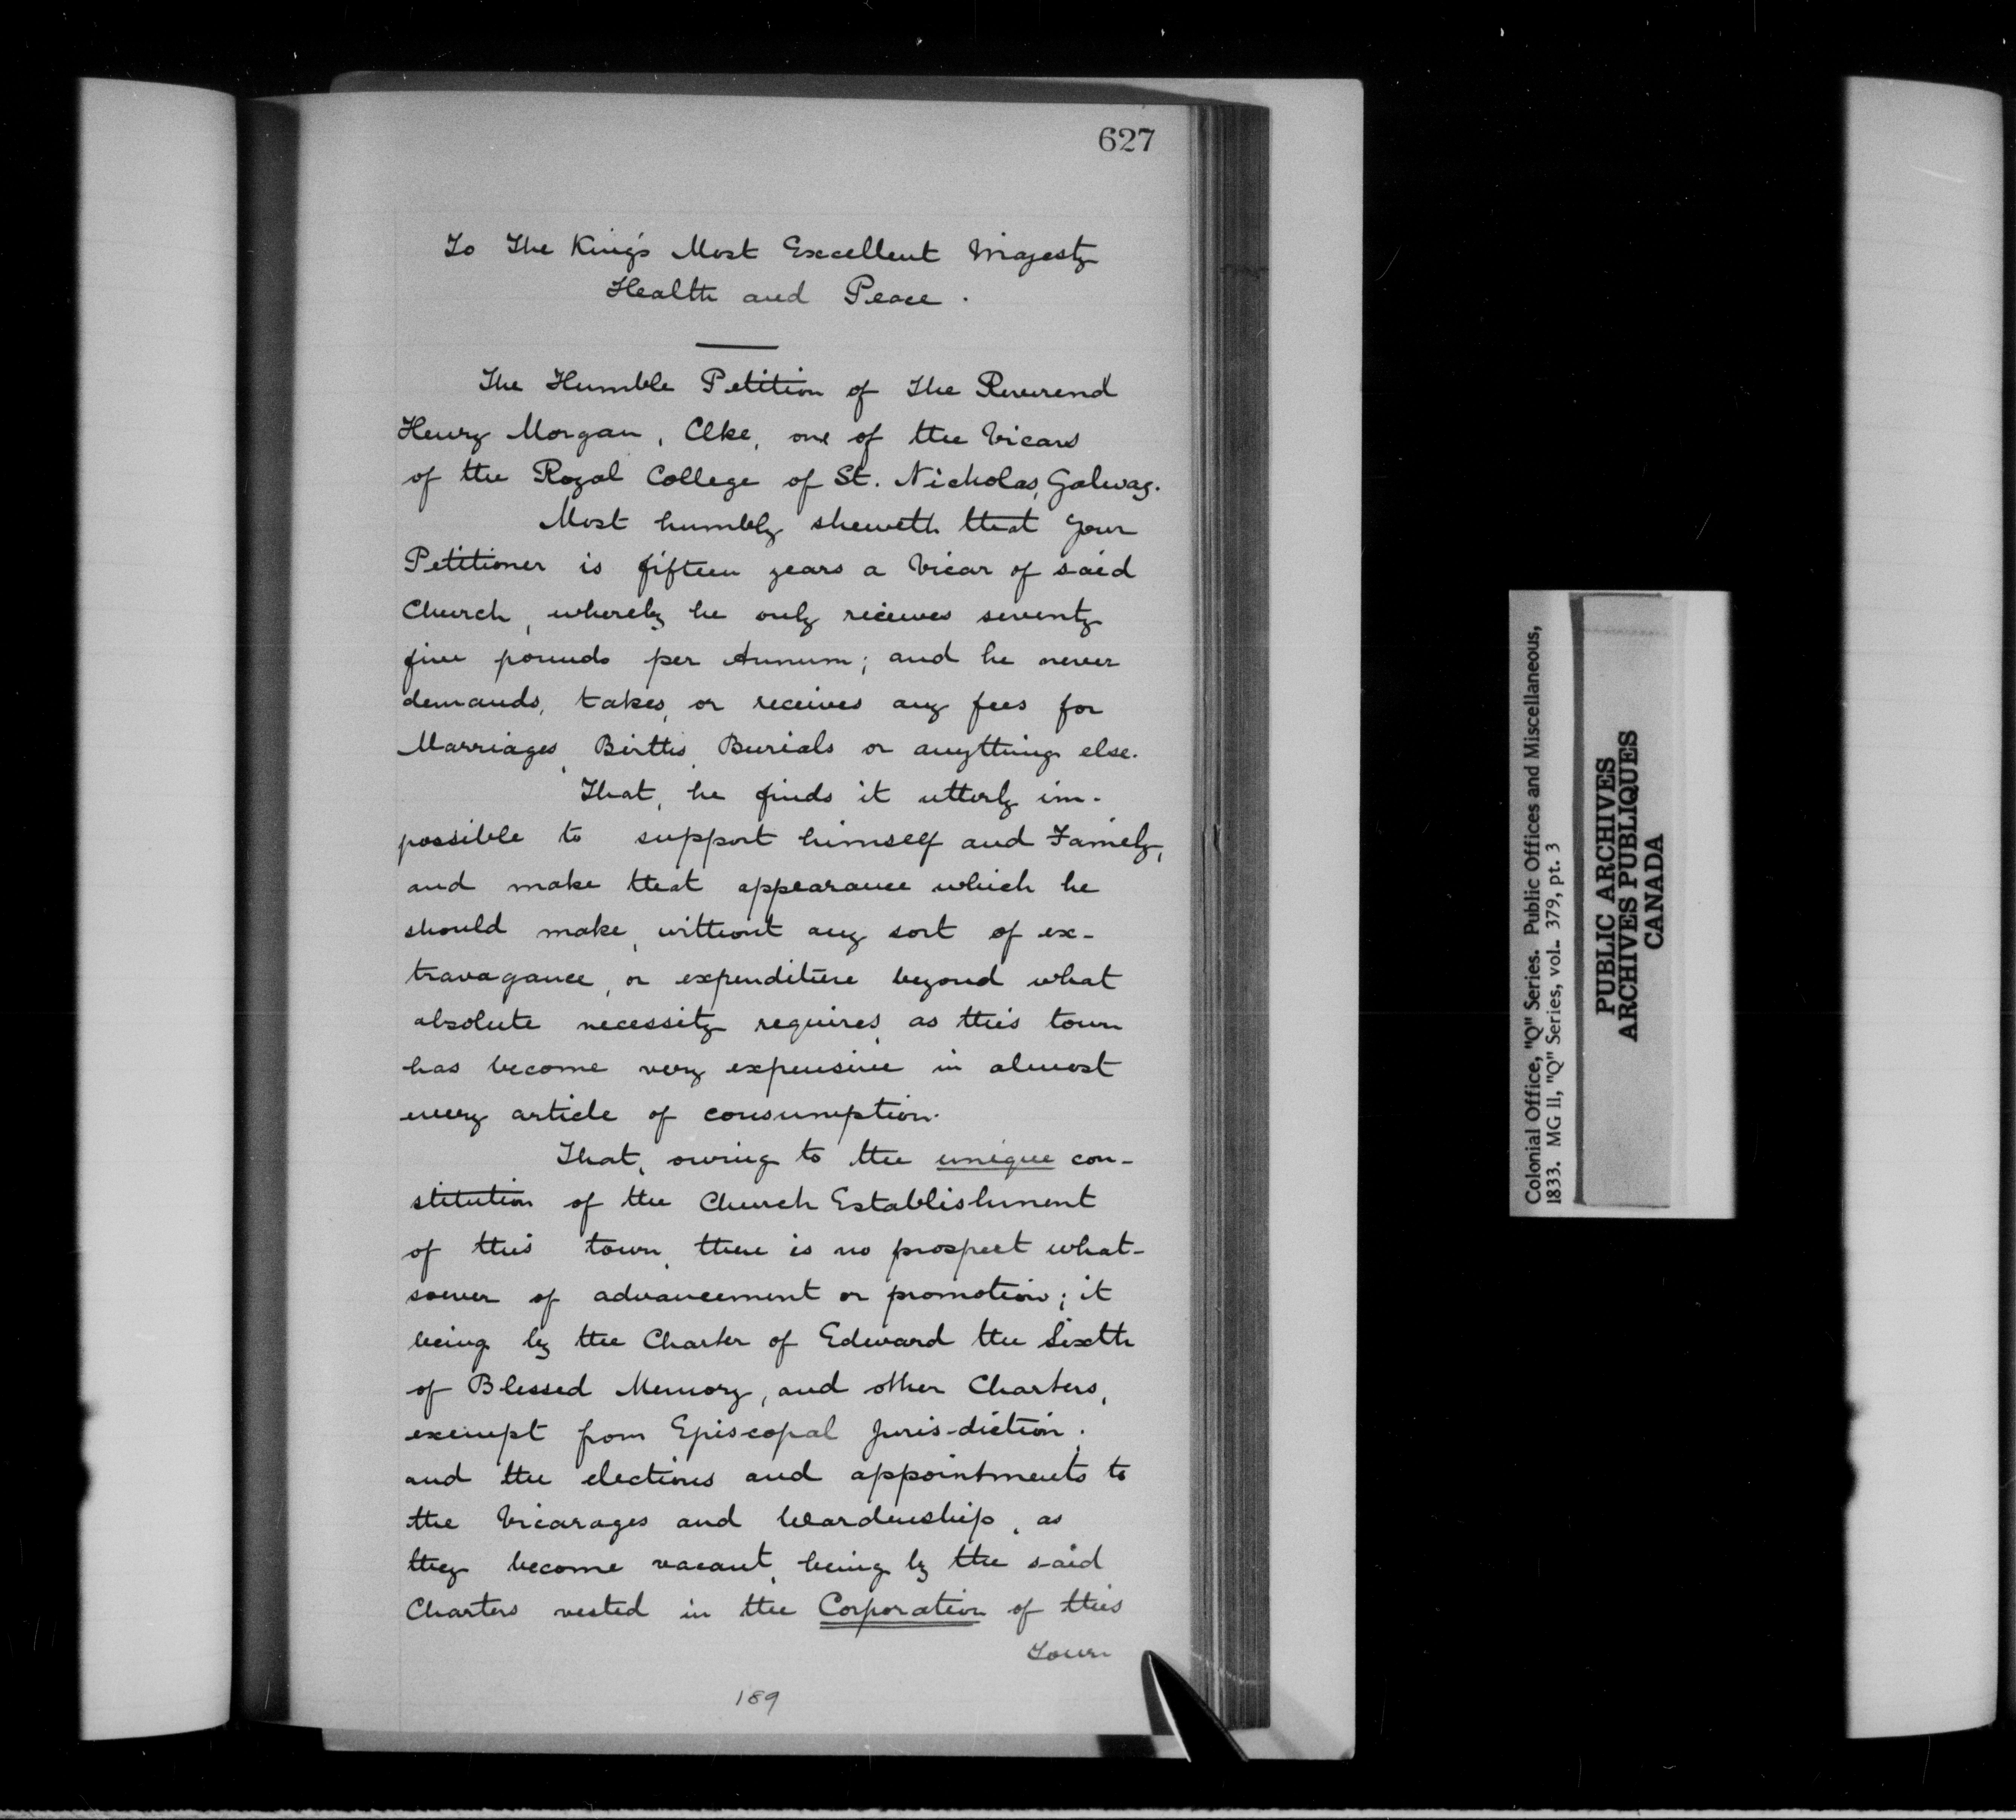 627
To The King's Most Excellent Majesty
Health and Peace.
The Humble Petition of The Reverend
Henry Morgan, Clke, one of the Vicars
of the Royal College of St. Nicholas, Galway.
Most humbly sheweth that your
Petitioner is fifteen years a Vicar of said
Church, whereby he only receives seventy
five pounds per Annum; and he never
demands, takes, or receives any fees for
Marriages, Births, Burials or anything else.
That, he finds it utterly im-
possible to support himself and Family,
and make that appearance which he
should make, without any sort of ex-
travagance, or expenditure beyond what
absolute necessity requires, as this town
has become very expensive in almost
every article of consumption.
That, owing to the unique con-
stitution of the Church Establishment
of this town, there is no prospect what-
soever of advancement or promotion; it
being by the Charter of Edward the Sixth
of Blessed Memory, and other Charters,
exempt from Episcopal Juris-diction;
and the elections and appointments to
the Vicarages and Wardenship, as
they become vacant, being by the said
Charters vested in the Corporation of this
Town
189
Colonial Office, "Q" Series. Public Offices and Miscellaneous,
1833. MG 11, "Q" Series, vol. 379, pt. 3
PUBLIC ARCHIVES
ARCHIVES PUBLIQUES
CANADA